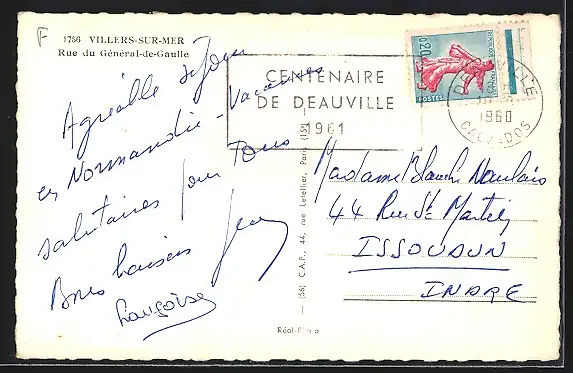 F
1756 VILLERS-SUR-MER
Rue du Général-de-Gaulle
Agréable séjour
en Normandie - Vacances
salutaires pour tous
Bons baisers Jean
Françoise
(56) C.A.P., 44, rue Letellier, Paris (15e)
Réal-Photo
CENTENAIRE
DE DEAUVILLE
1961
0,20
POSTES
1960
CALVADOS
Madame Blanche
44 Rue St Martin
ISSOUDUN
INDRE